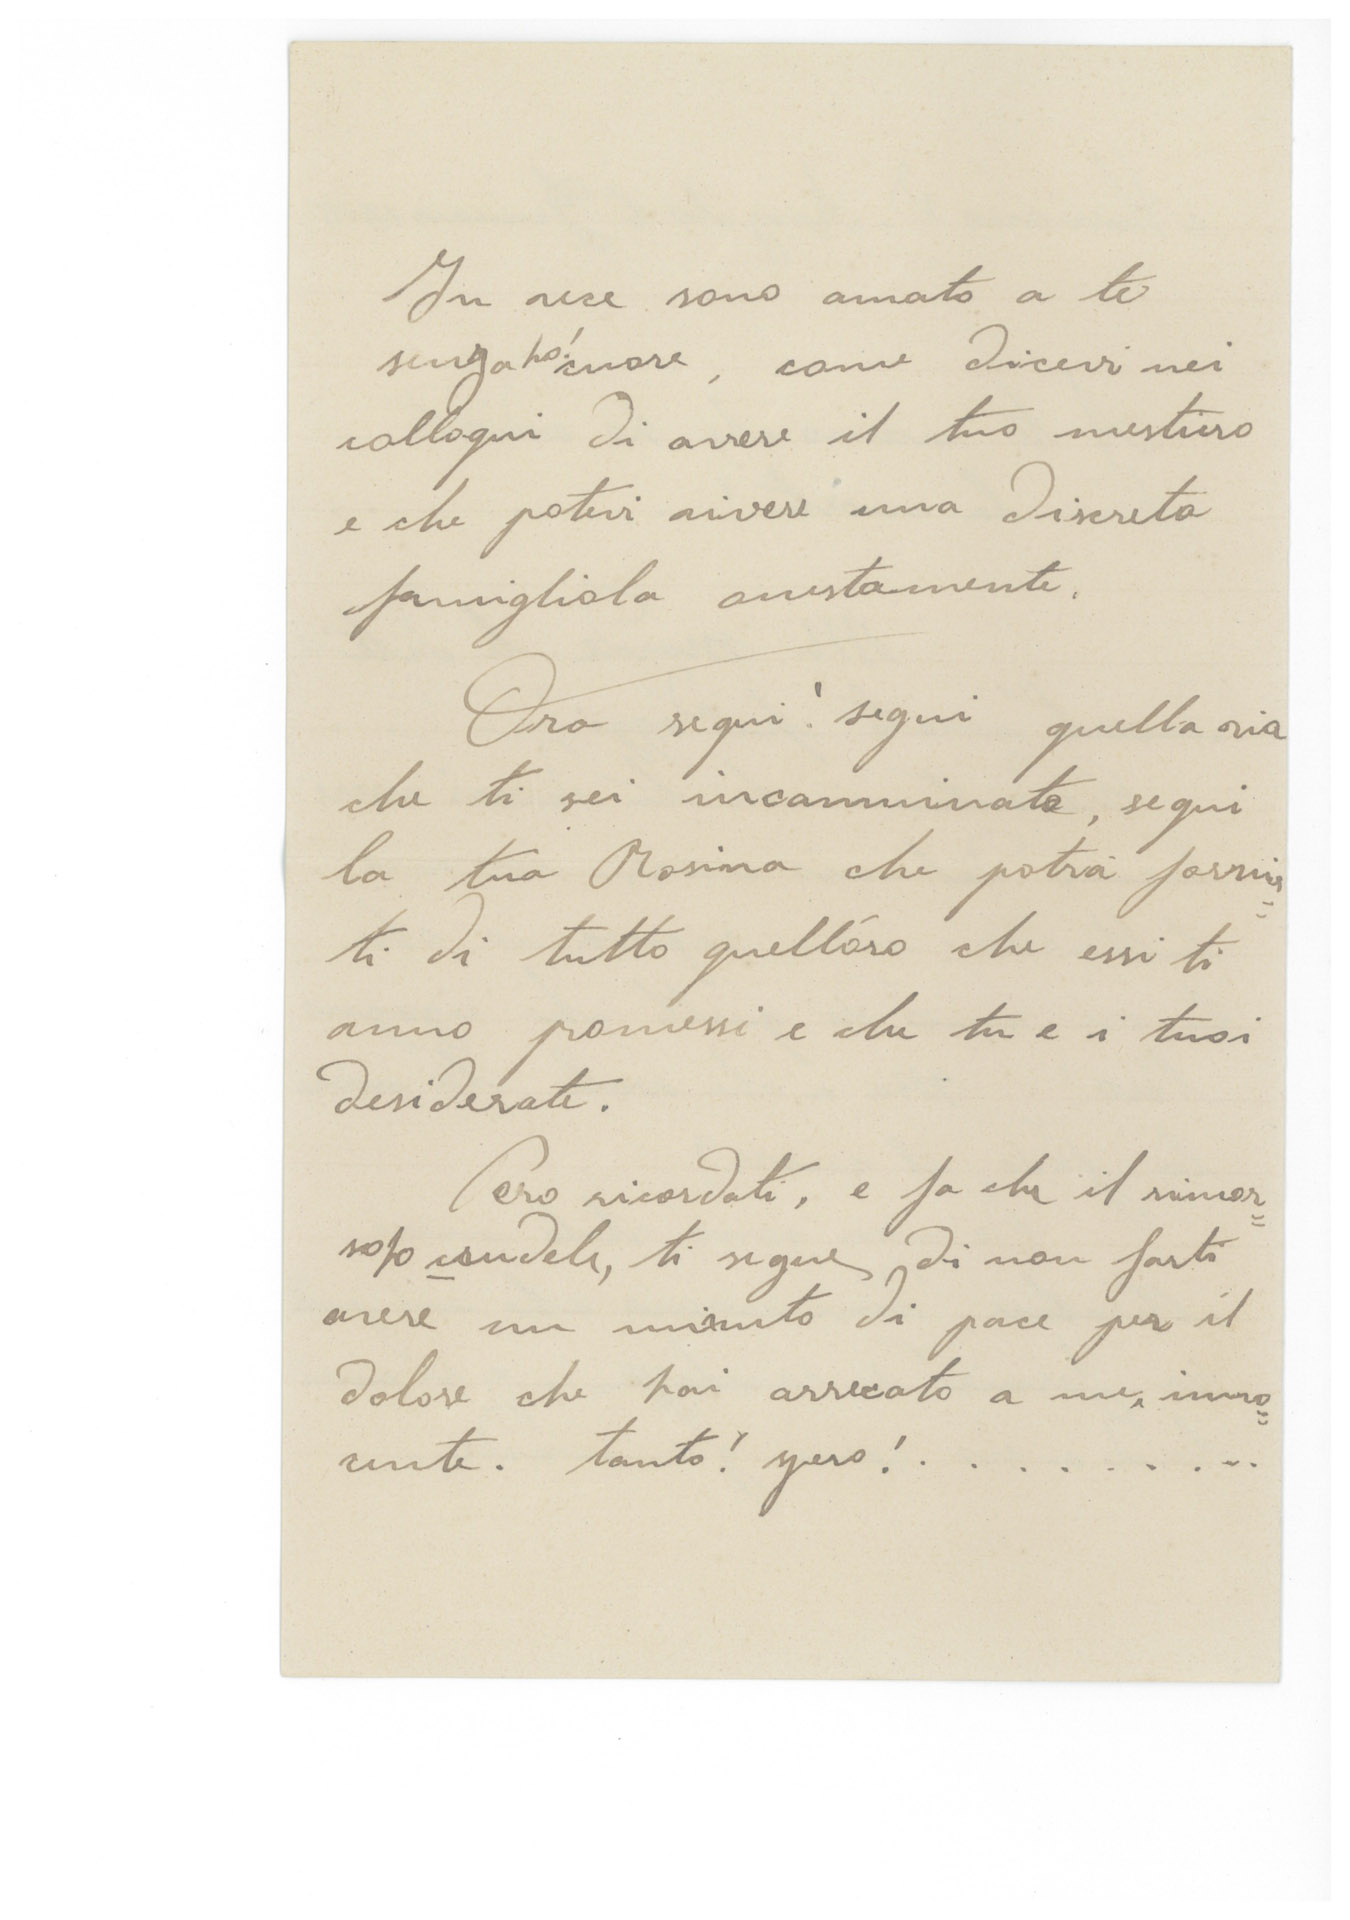 In vece sono amato a te
senza ho! cuore, come dicevi nei
colloqui di avere il tuo mestiero
e che potevi vivere una discreta
famigliola onestamente.
Ora segui! segui quella via
che ti sei incamminata, segui
la tua Rosina che potrà fornir=
ti di tutto quell'oro che essi ti
anno promessi e che tu e i tuoi
desiderate.
Pero ricordati, e fa che il rimor=
so crudele, ti segue di non farti
avere un minuto di pace per il
dolore che hai arrecato a me, inno=
cente. tanto! vero! . . . . . . . . .